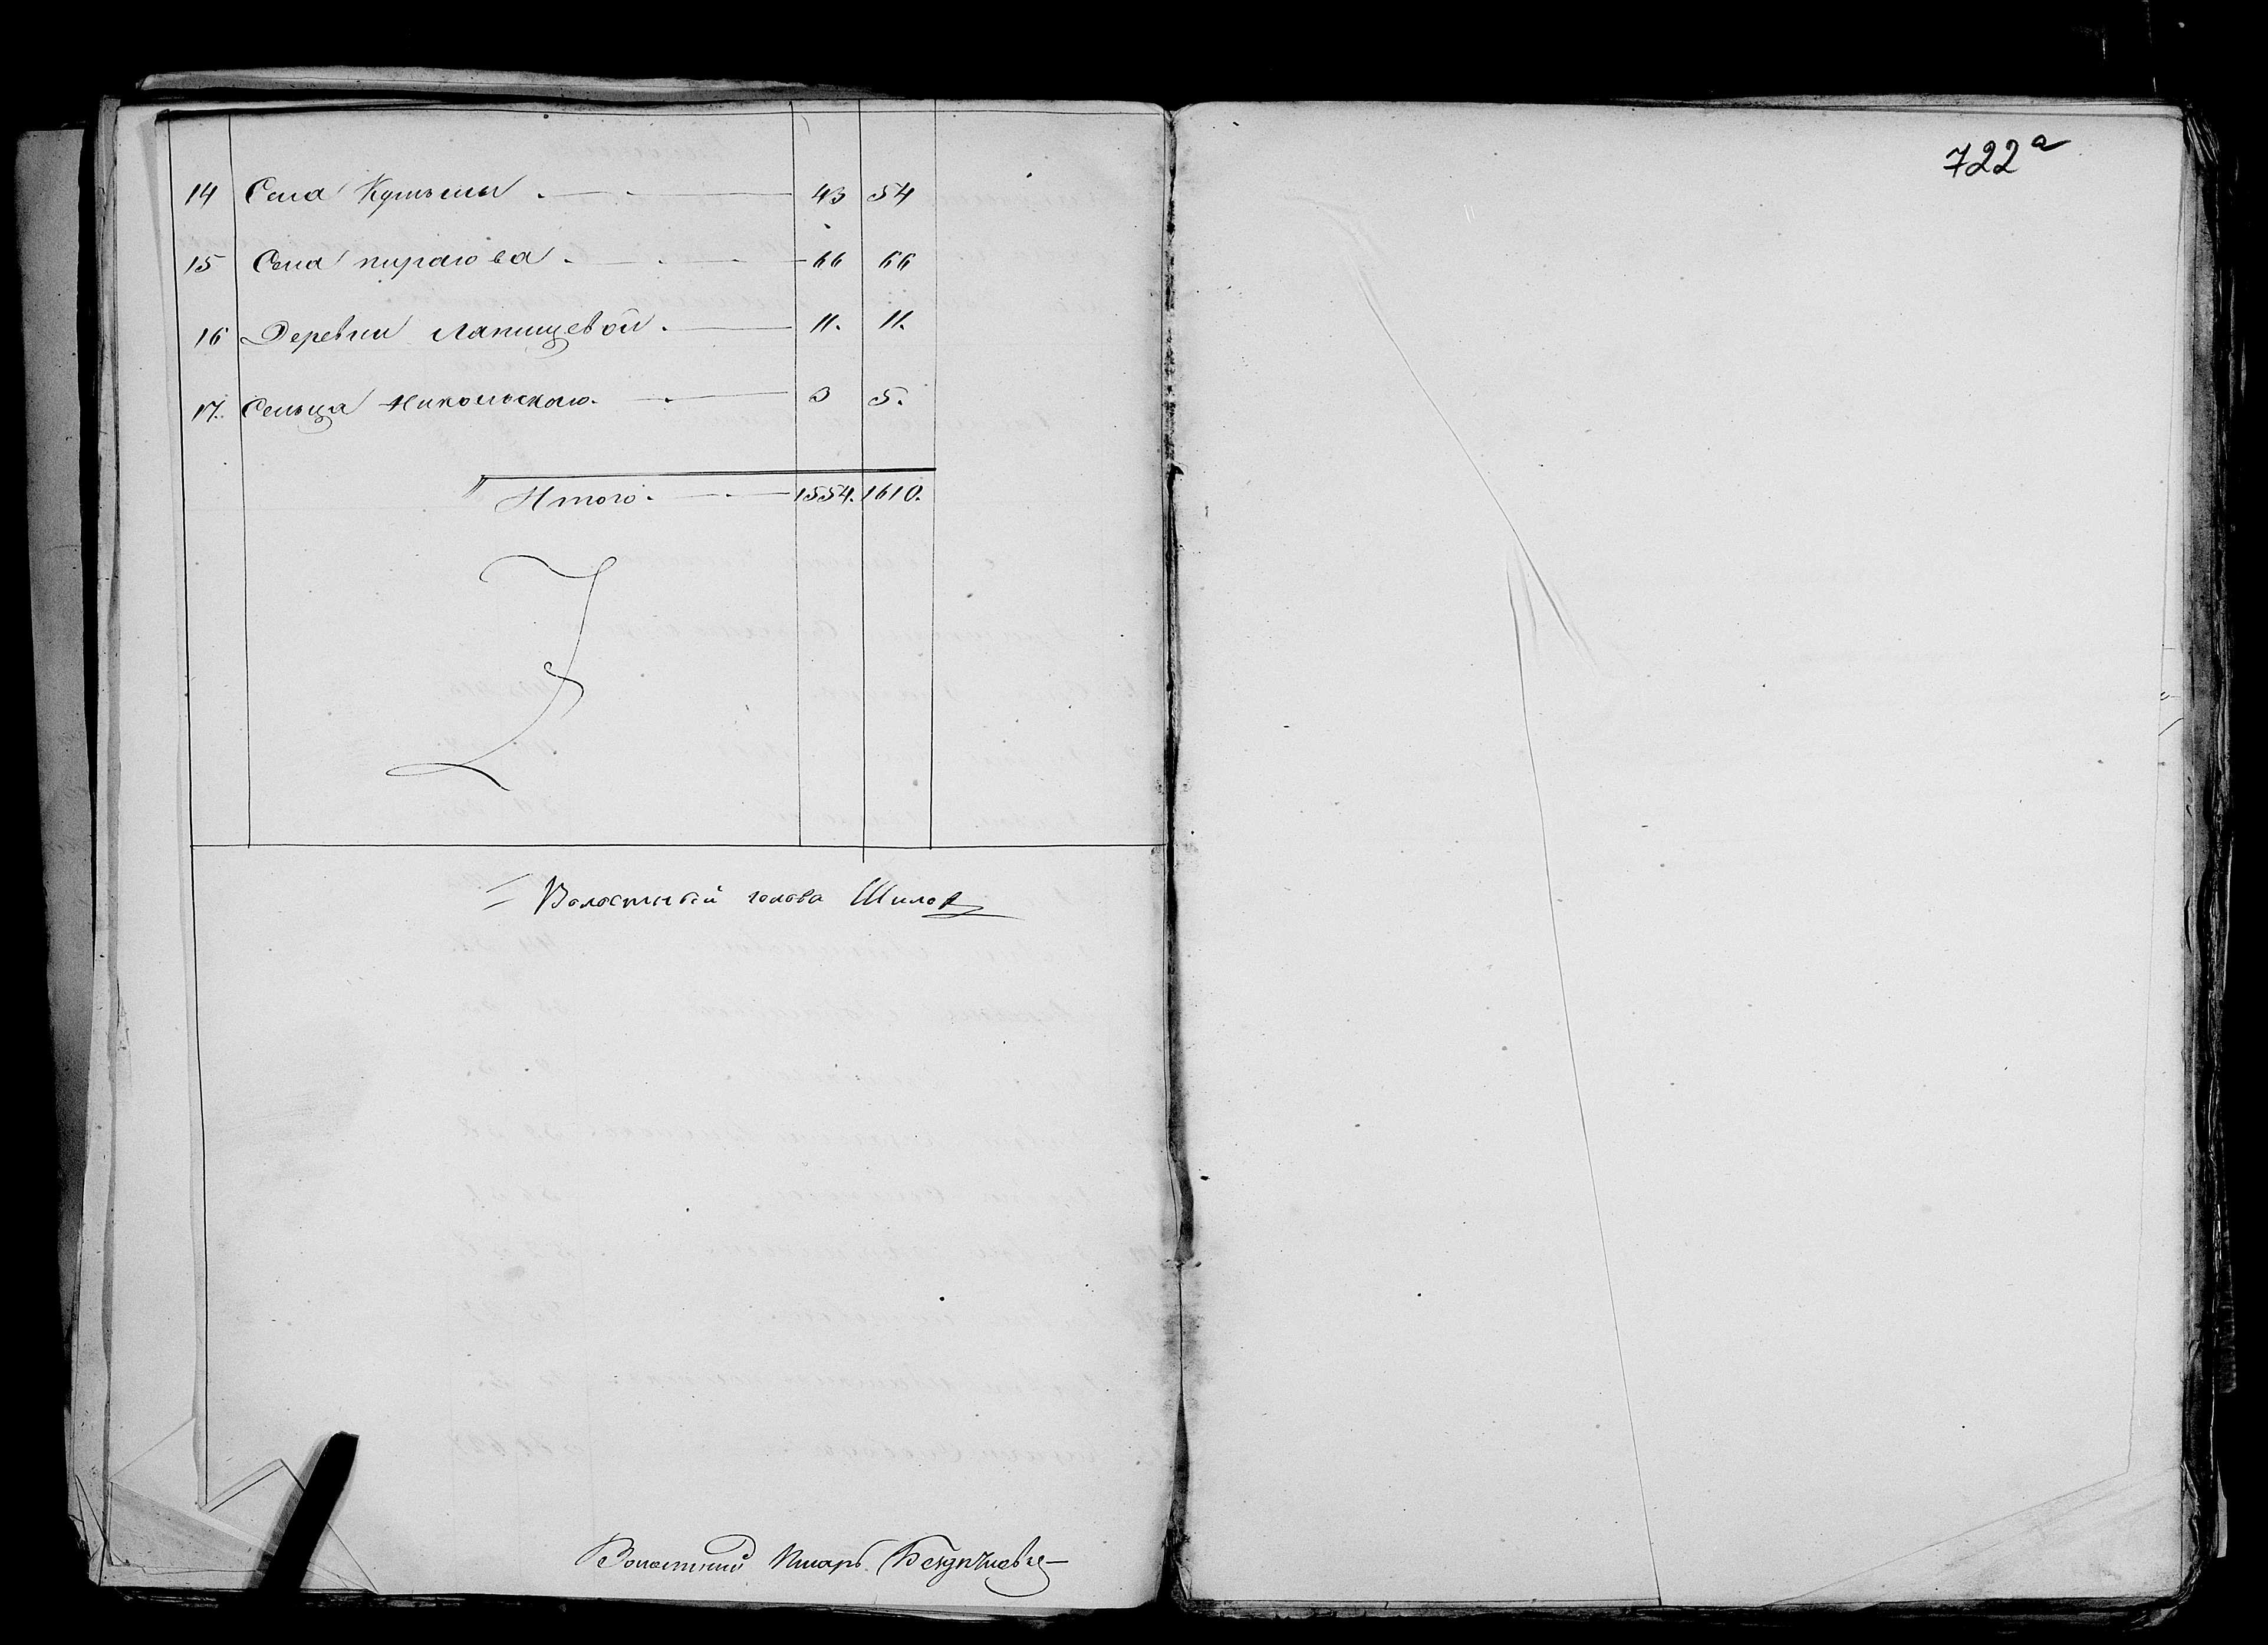 722а
14 Села 43 54
15 Села пирагова 66 66
16 Деревни Лапищевой. 11. 11.
17. Сельца Никольскаго. 3 5.
Итого. 1554. 1610.
Волостный голова Шилов
Волостный Писарь